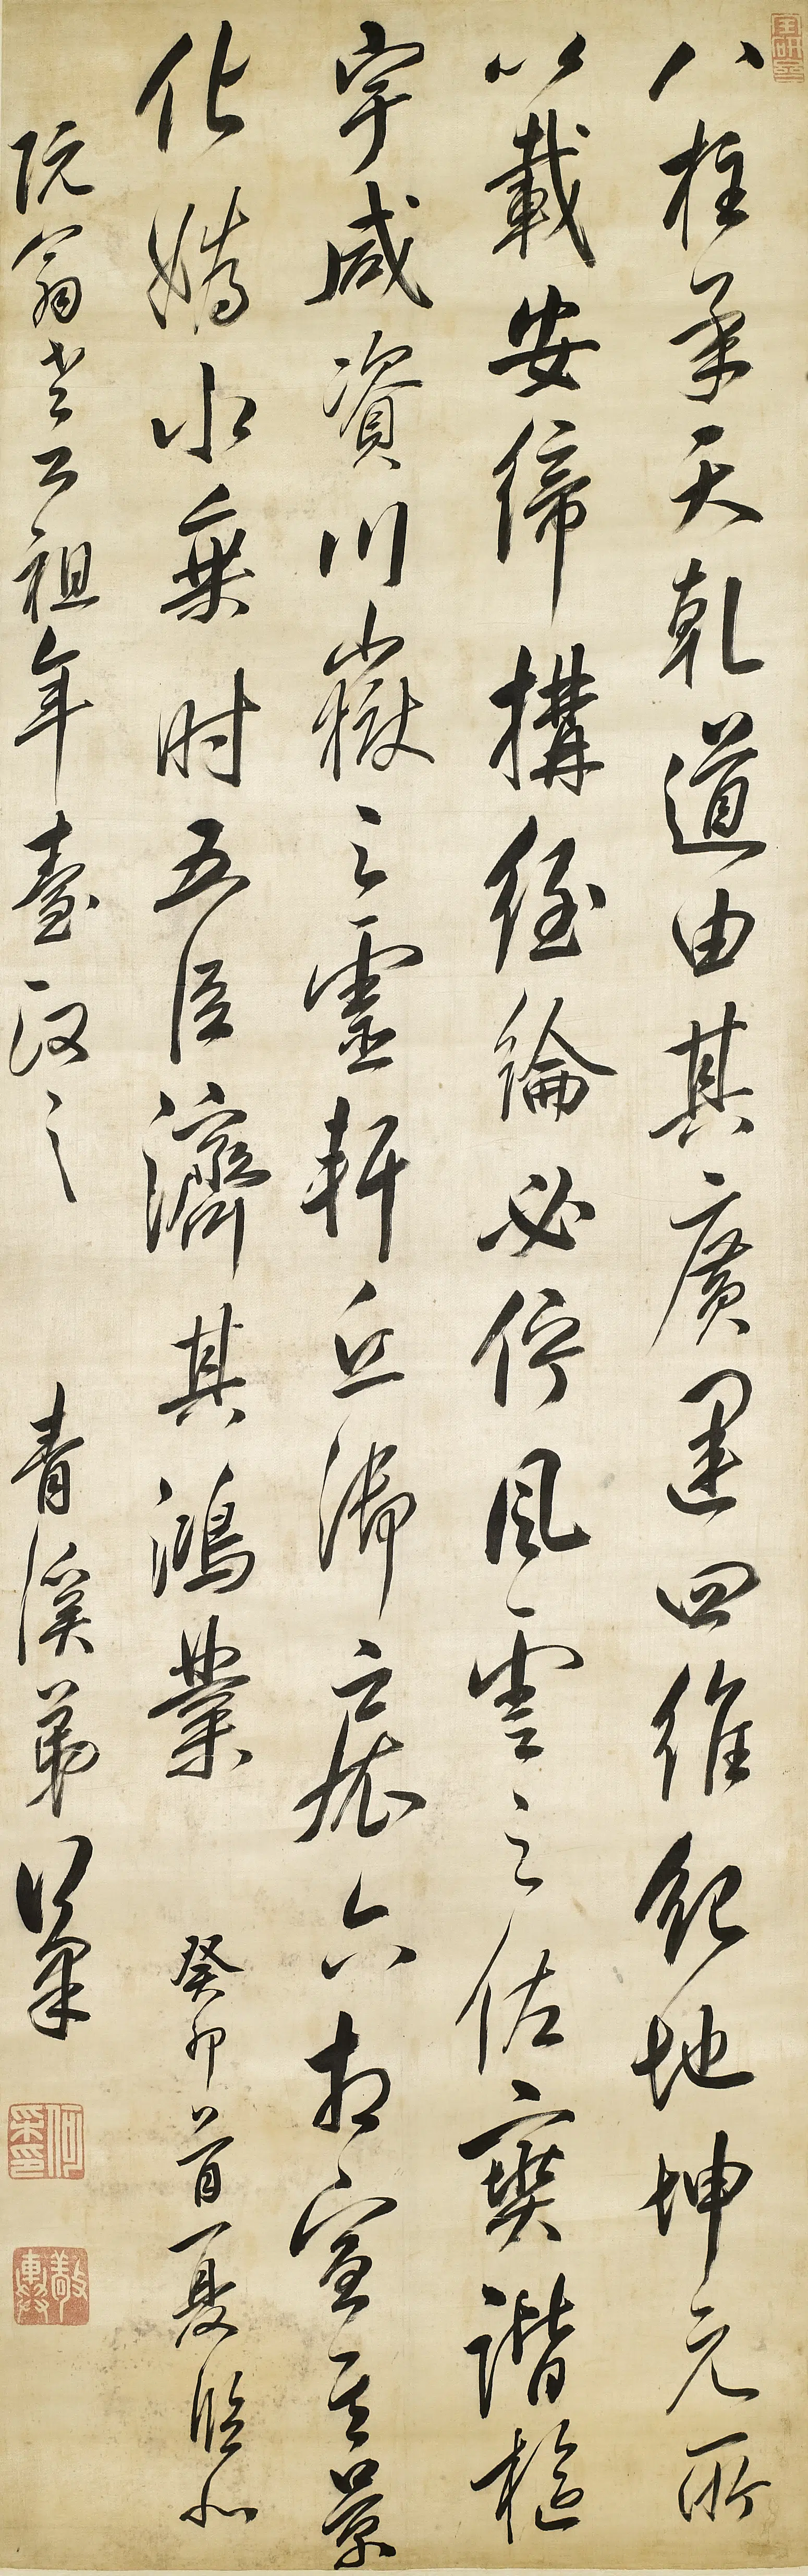 八柱承天乾道由其廣運四維紀地坤元所
以載安締搆經綸必佇風雲之佐寔諧樞
宰咸資川嶽之靈軒丘御宸六相宣其景
化媯水乘時五臣濟其鴻業 癸卯首夏臨似
阮翁老公祖年臺政之 青溪弟何采
何采之印